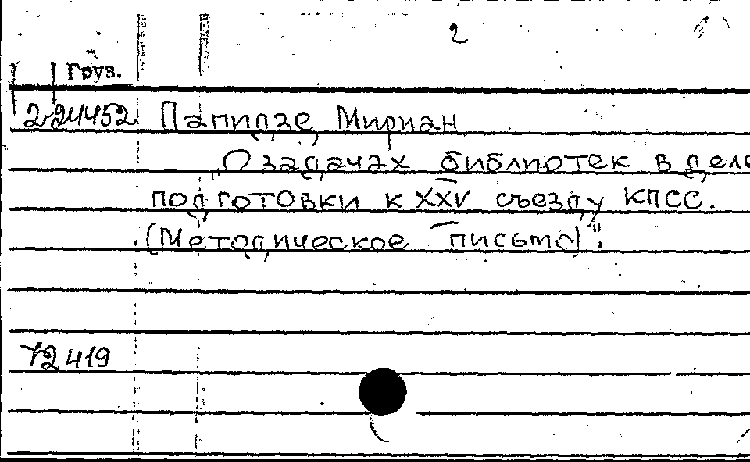 2
Груз.
2-24452 Папидзе, Мириан
„О задачах библиотек в деле
подготовки к XXV съезду КПСС.
(Методическое письмо)".
72419